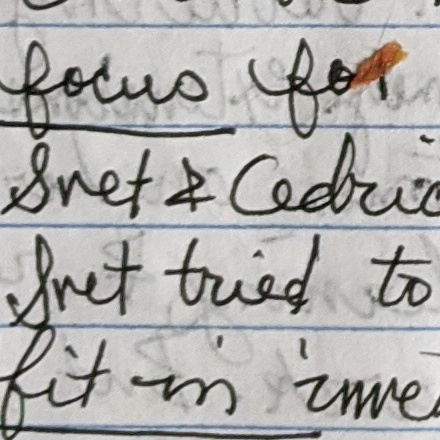 focus for
Sret & Cedric
Sret tried to
fit in